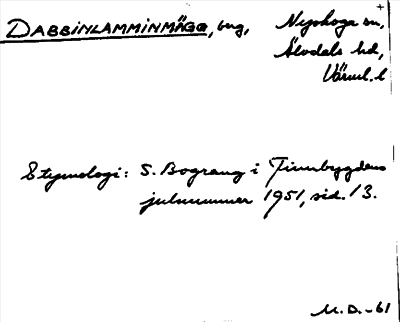 DABBINLAMMINMÄGG, berg, Nyskoga sn,
Älvdals hd,
Värml. l
Etymologi: S. Bograng i Finnbygdens
julnummer 1951, sid. 13.
M.D.-61